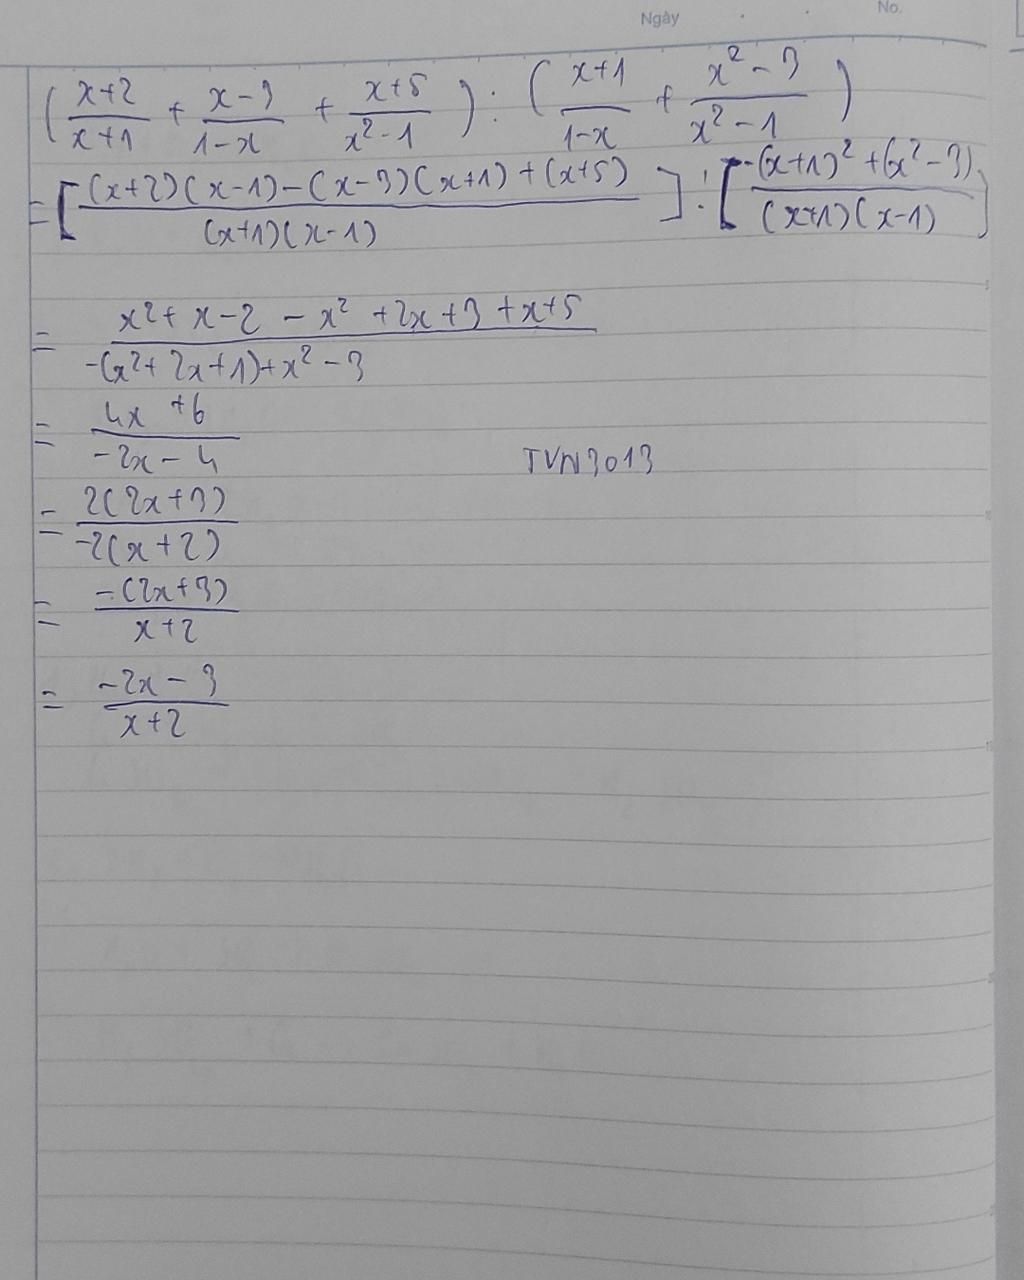 Ngày No.
( (x+2)/(x+1) + (x-3)/(1-x) + (x+5)/(x²-1) ) : ( (x+1)/(1-x) + (x²-3)/(x²-1) )
= [ ((x+2)(x-1)-(x-3)(x+1)+(x+5))/((x+1)(x-1)) ] : [ (-(x+1)²+(x²-3))/((x+1)(x-1)) ]
= (x²+x-2-x²+2x+3+x+5)/(-(x²+2x+1)+x²-3)
= (4x+6)/(-2x-4)
TVN3013
= 2(2x+3)/-2(x+2)
= -(2x+3)/(x+2)
= (-2x-3)/(x+2)